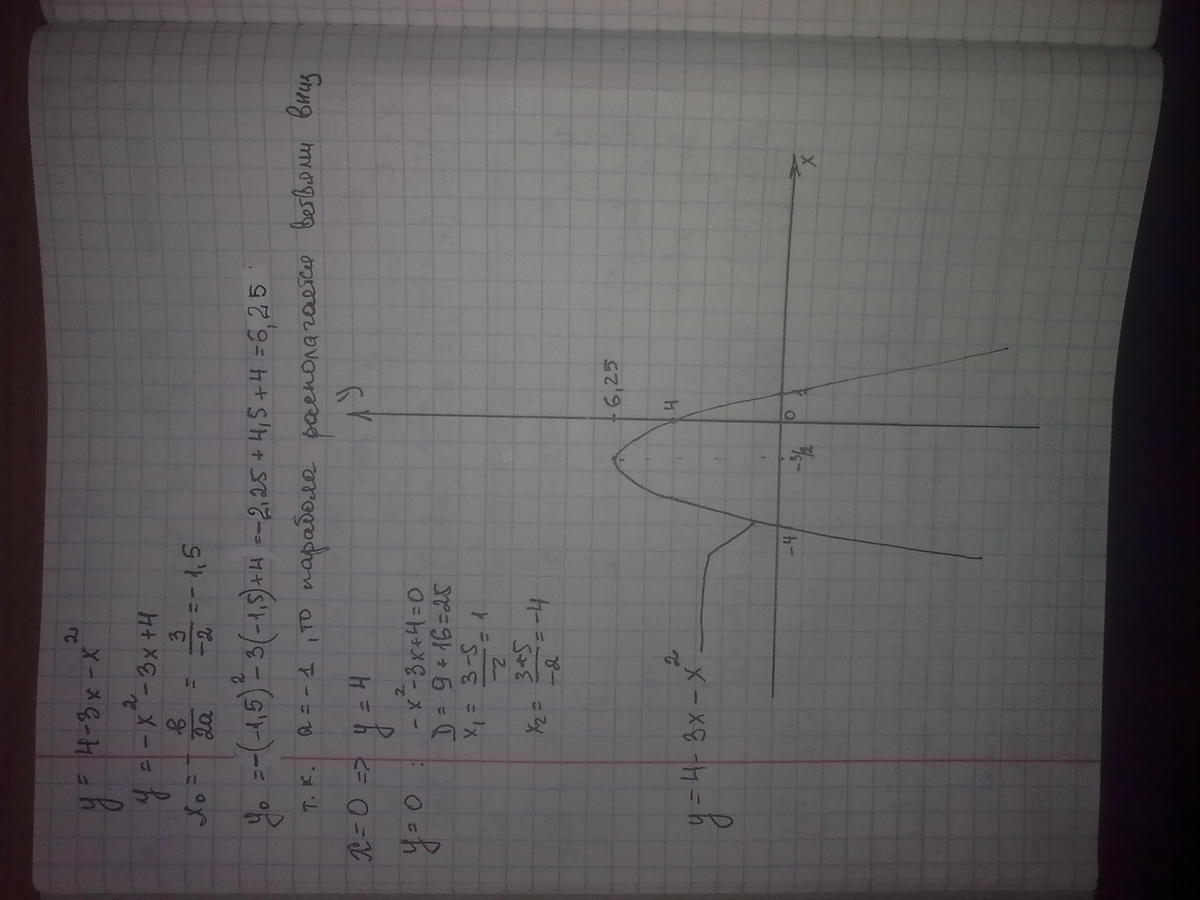 y = 4 - 3x - x²
y = -x² - 3x + 4
x₀ = -в/2a = 3/-2 = -1,5
y₀ = -(-1,5)² - 3(-1,5) + 4 = -2,25 + 4,5 + 4 = 6,25
т.к. a = -1, то парабола располагается ветвями вниз
x = 0 => y = 4
y = 0 : -x² - 3x + 4 = 0
D = 9 + 16 = 25
x₁ = 3-5/-2 = 1
x₂ = 3+5/-2 = -4
y
6,25
4
-4
-3/2
0
x
y = 4 - 3x - x²